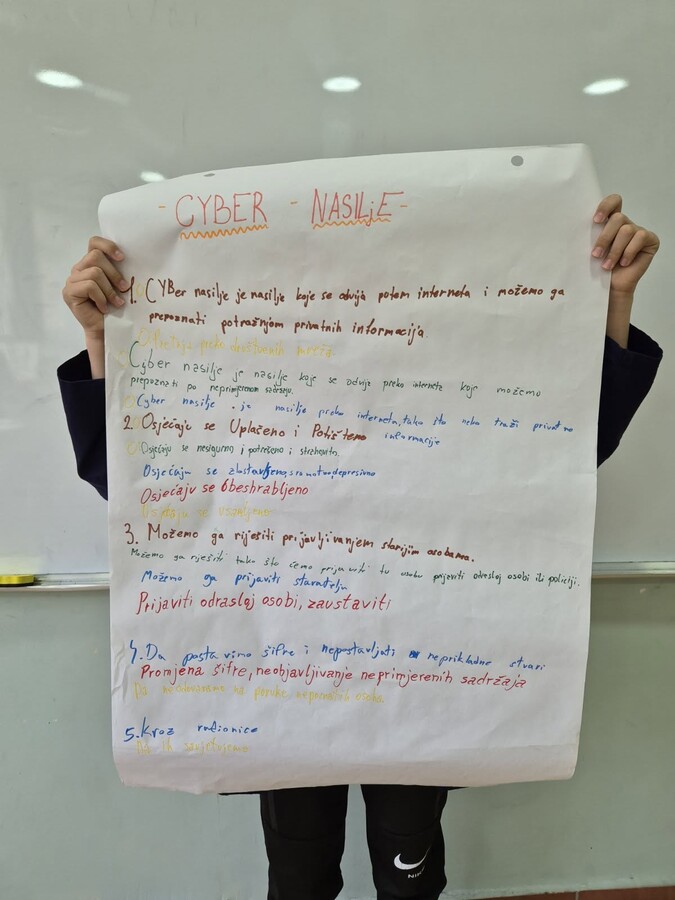 - CYBER - NASILjE -
1. CYBer nasilje je nasilje koje se odvija putem interneta i možemo ga
prepoznati potražnjom privatnih informacija.
preko društvenih mreža
Cyber nasilje je nasilje koje se odvija preko interneta koje možemo
prepoznati po neprimjerenom sadržaju.
Cyber nasilje je nasilje preko interneta, tako što neko traži privatne
informacije
2. Osjećaju se Uplašeno i Potišteno
Osjećaju se nesigurno i potrešeno i strahovito.
Osjećaju se zlostavljeno, sramotno, depresivno
Osjećaju se obeshrabljeno
Osjećaju se
3. Možemo ga riješiti prijavljivanjem starijim osobama.
Možemo ga riješiti tako što ćemo prijaviti tu osobu prijaviti odrasloj osobi ili policiji.
Možemo ga prijaviti staratelju
Prijaviti odrasloj osobi, zaustaviti
4. Da postavimo šifre i nepostavljati neprikladne stvari
Promjena šifre, neobjavljivanje neprimjerenih sadržaja
Da ne odgovaramo na poruke nepoznatih osoba
5. Kroz radionice
Da ih savjetujemo
NIKE